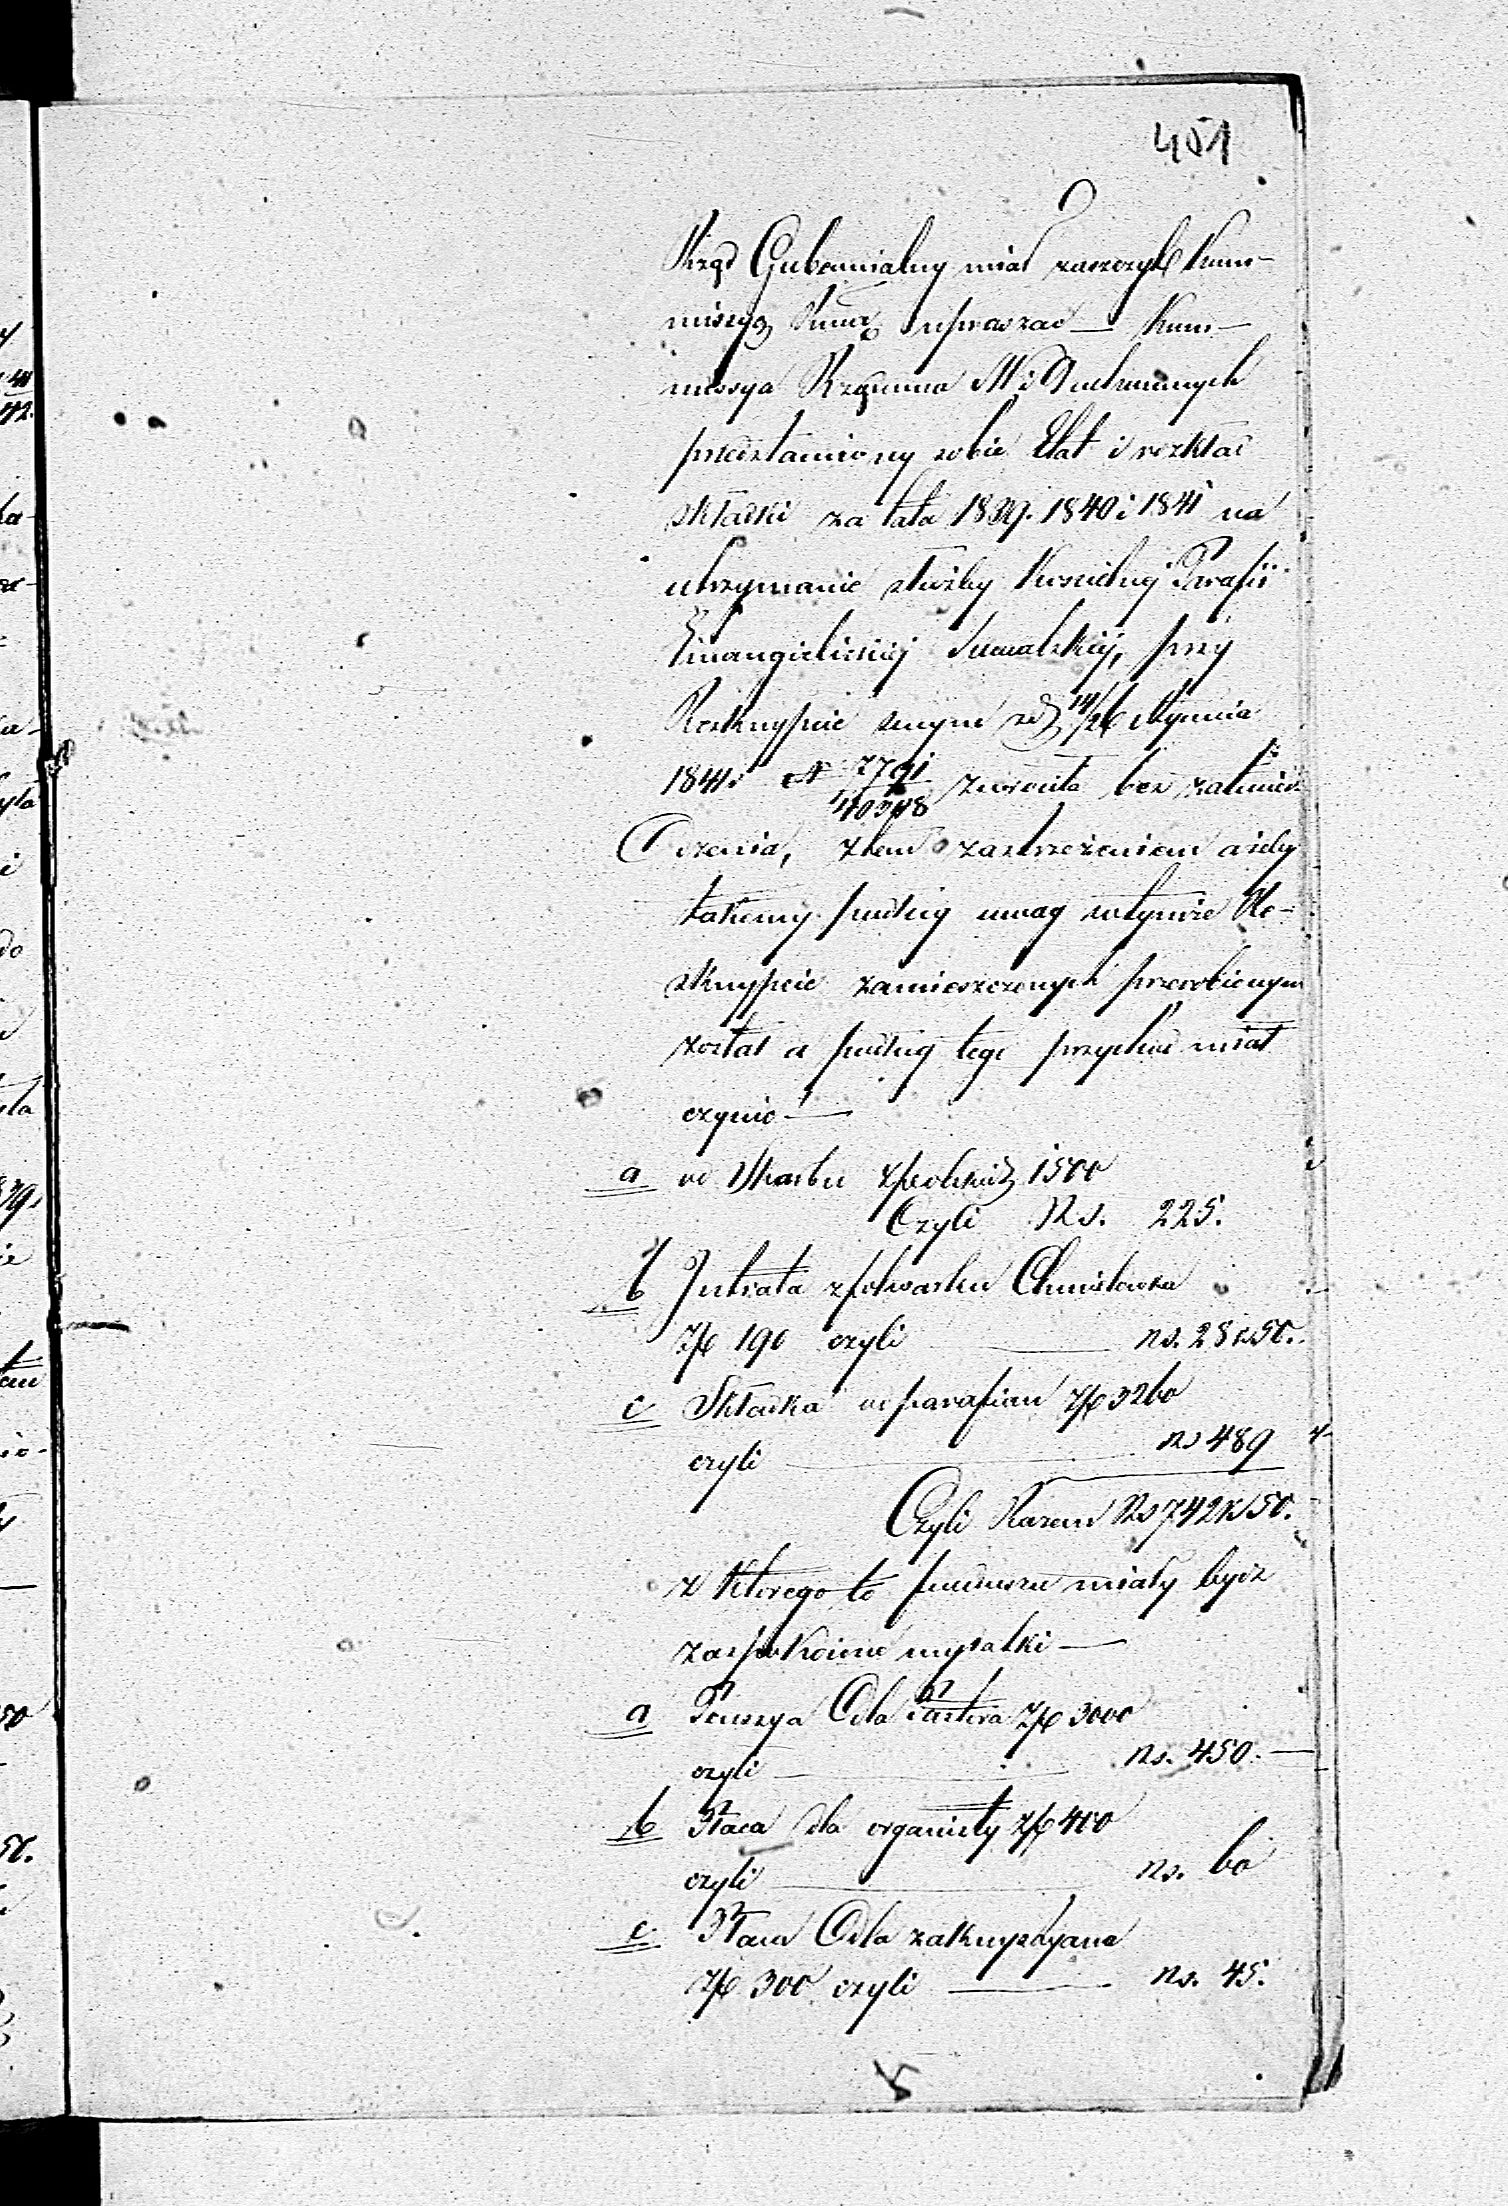 451
Rząd Gubernialny miał zaszczyt Kom-
missyą upraszać — Kom-
missya Rządowa
przedstawiony sobie Etat i rozkład
składki za lata 1839. 1840 i 1841 na
utrzymanie służby Kościelnej Parafii
Ewangielickiej Suwalskiej, przy
Reskrypcie swym z d. 14/26 Stycznia
1841 r. N 2791/40348 zwróciła bez zatwier-
dzenia, z tem zastrzeżeniem ażeby
takowy podług uwag w tymże Re-
skrypcie zamieszczonych przerobionym
został a podług tego przychód miał
czynić —
a ze Skarbu złpolskich 1500
Czyli Rs. 225.
b Intrata z folwarku Chmielówka
Złp 190 czyli — rs. 28 k 50.
c Składka od parafian Złp 3260
czyli — rs 489
Czyli Razem Rs 742 k 50.
z którego to funduszu miały bydz
zaspokoione wydatki —
a Pensya dla Pastora Złp 3000
czyli — rs. 450. —
b Płaca dla organisty złp 400
czyli — rs. 60
c Płaca dla zakrystyana
Złp 300 czyli — rs. 45.